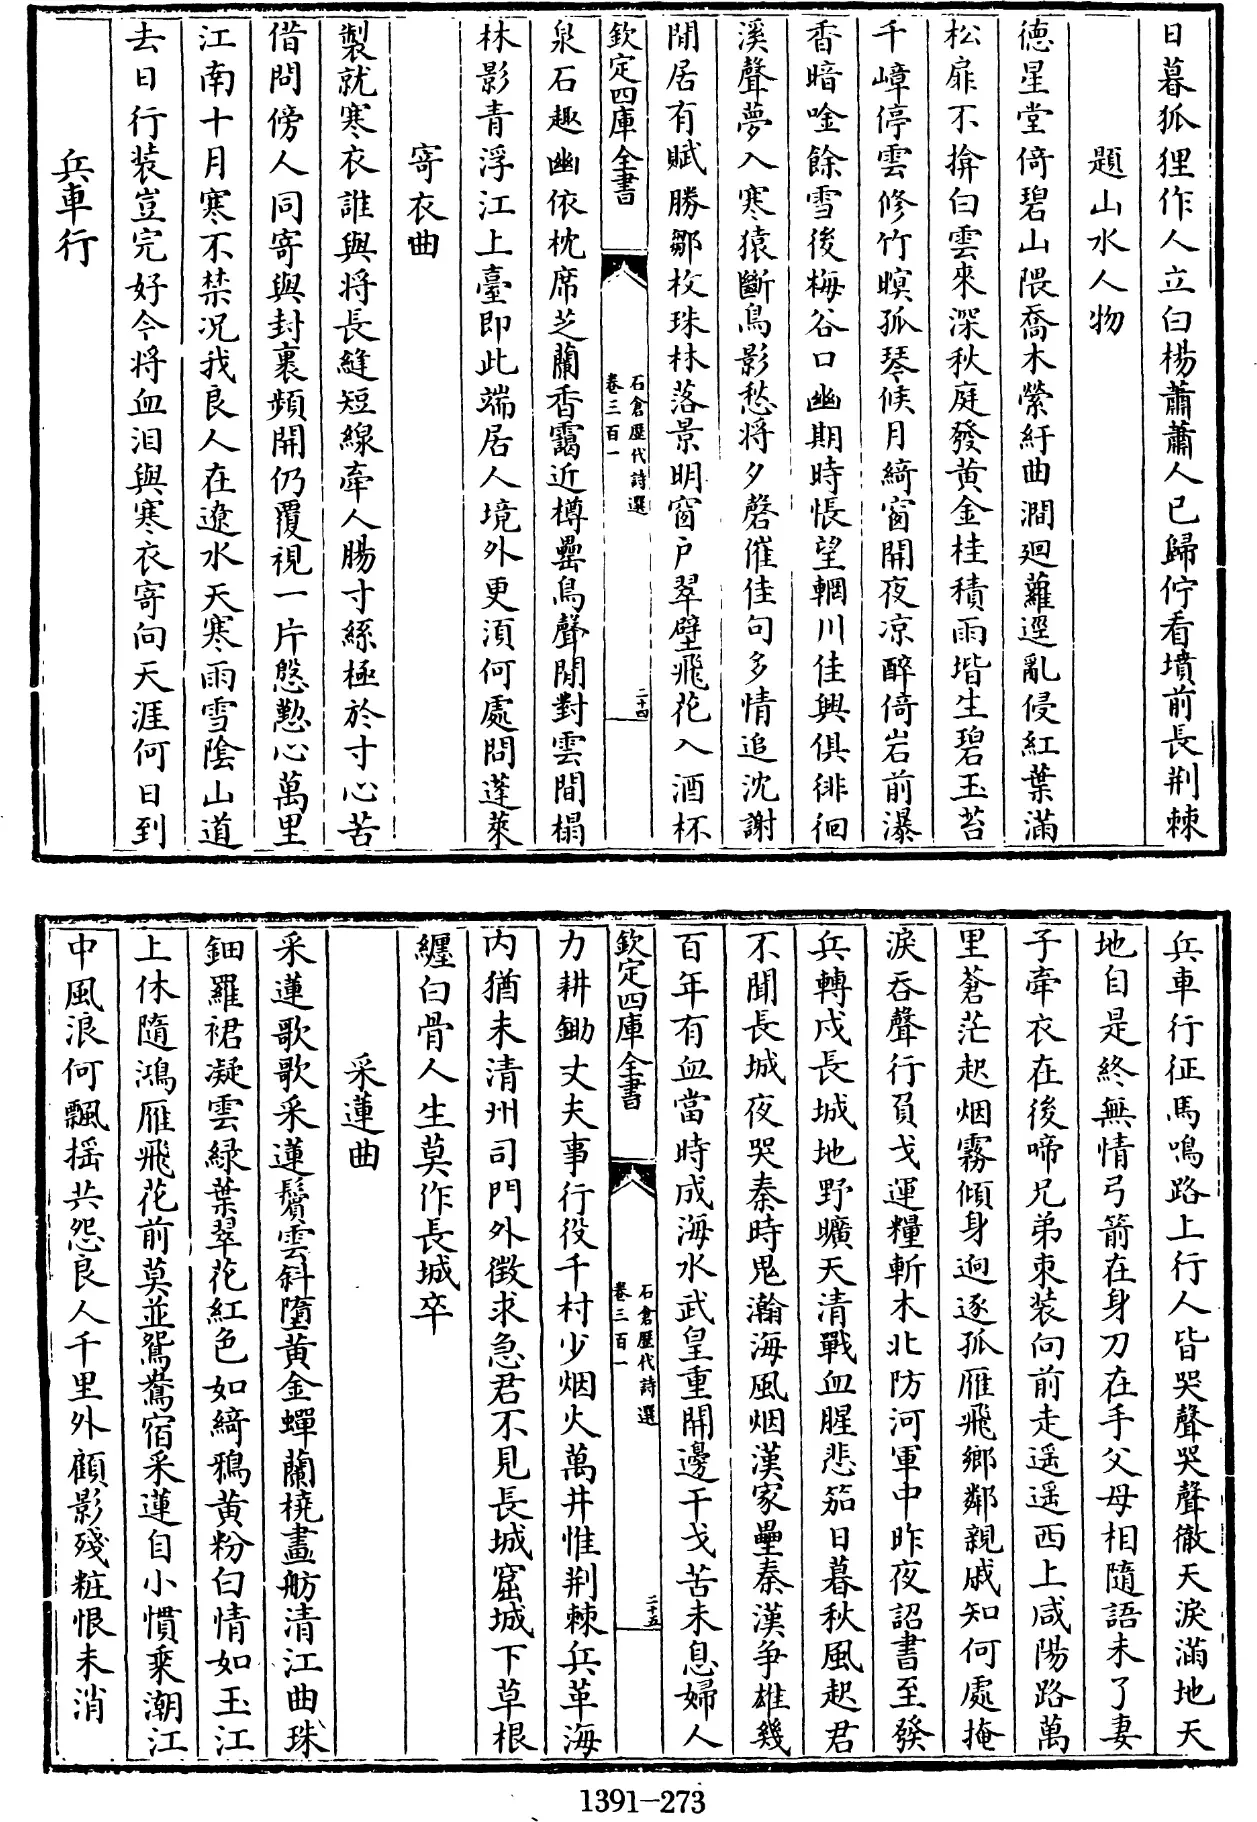 日暮狐狸作人立白楊蕭蕭人已歸佇看墳前長荆棘
題山水人物
徳星堂倚碧山隈喬木縈紆曲澗廻蘿逕亂侵紅葉滿
松扉不揜白雲來深秋庭發黄金桂積雨堦生碧玉苔
千嶂停雲修竹暝孤琴候月綺窗開夜凉醉倚岩前瀑
香暗唫餘雪後梅谷口幽期時悵望輞川佳興俱徘徊
溪聲夢入寒猿斷鳥影愁將夕磬催佳句多情追沈謝
閒居有賦勝鄒枚珠林落景明窗户翠壁飛花入酒杯
欽定四庫全書
石倉歴代詩選
卷三百一
二十四
泉石趣幽依枕席芝蘭香靄近樽罍鳥聲閒對雲間榻
林影青浮江上臺即此端居人境外更湏何處問蓬萊
寄衣曲
製就寒衣誰與將長縫短線牽人腸寸絲極於寸心苦
借問傍人同寄與封裹頻開仍覆視一片慇懃心萬里
江南十月寒不禁况我良人在遼水天寒雨雪隂山道
去日行装豈完好今將血泪與寒衣寄向天涯何日到
兵車行
兵車行征馬鳴路上行人皆哭聲哭聲徹天淚滿地天
地自是終無情弓箭在身刀在手父母相隨語未了妻
子牽衣在後啼兄弟束装向前走遥遥西上咸陽路萬
里蒼茫起烟霧傾身逈逐孤雁飛鄉鄰親戚知何處掩
淚吞聲行負戈運糧斬木北防河軍中昨夜詔書至發
兵轉戍長城地野曠天清戰血腥悲笳日暮秋風起君
不聞長城夜哭秦時鬼瀚海風烟漢家壘秦漢争雄幾
百年有血當時成海水武皇重開邊干戈苦未息婦人
欽定四庫全書
石倉歴代詩選
卷三百一
二十五
力耕鋤丈夫事行役千村少烟火萬井惟荆棘兵革海
内猶未清州司門外徴求急君不見長城窟城下草根
纒白骨人生莫作長城卒
采蓮曲
采蓮歌歌采蓮鬢雲斜墮黄金蟬蘭橈畫舫清江曲珠
鈿羅裙凝雲緑葉翠花紅色如綺鴉黄粉白情如玉江
上休隨鴻雁飛花前莫並鴛鴦宿采蓮自小慣乘潮江
中風浪何飄揺共怨良人千里外顧影殘粧恨未消
1391-273